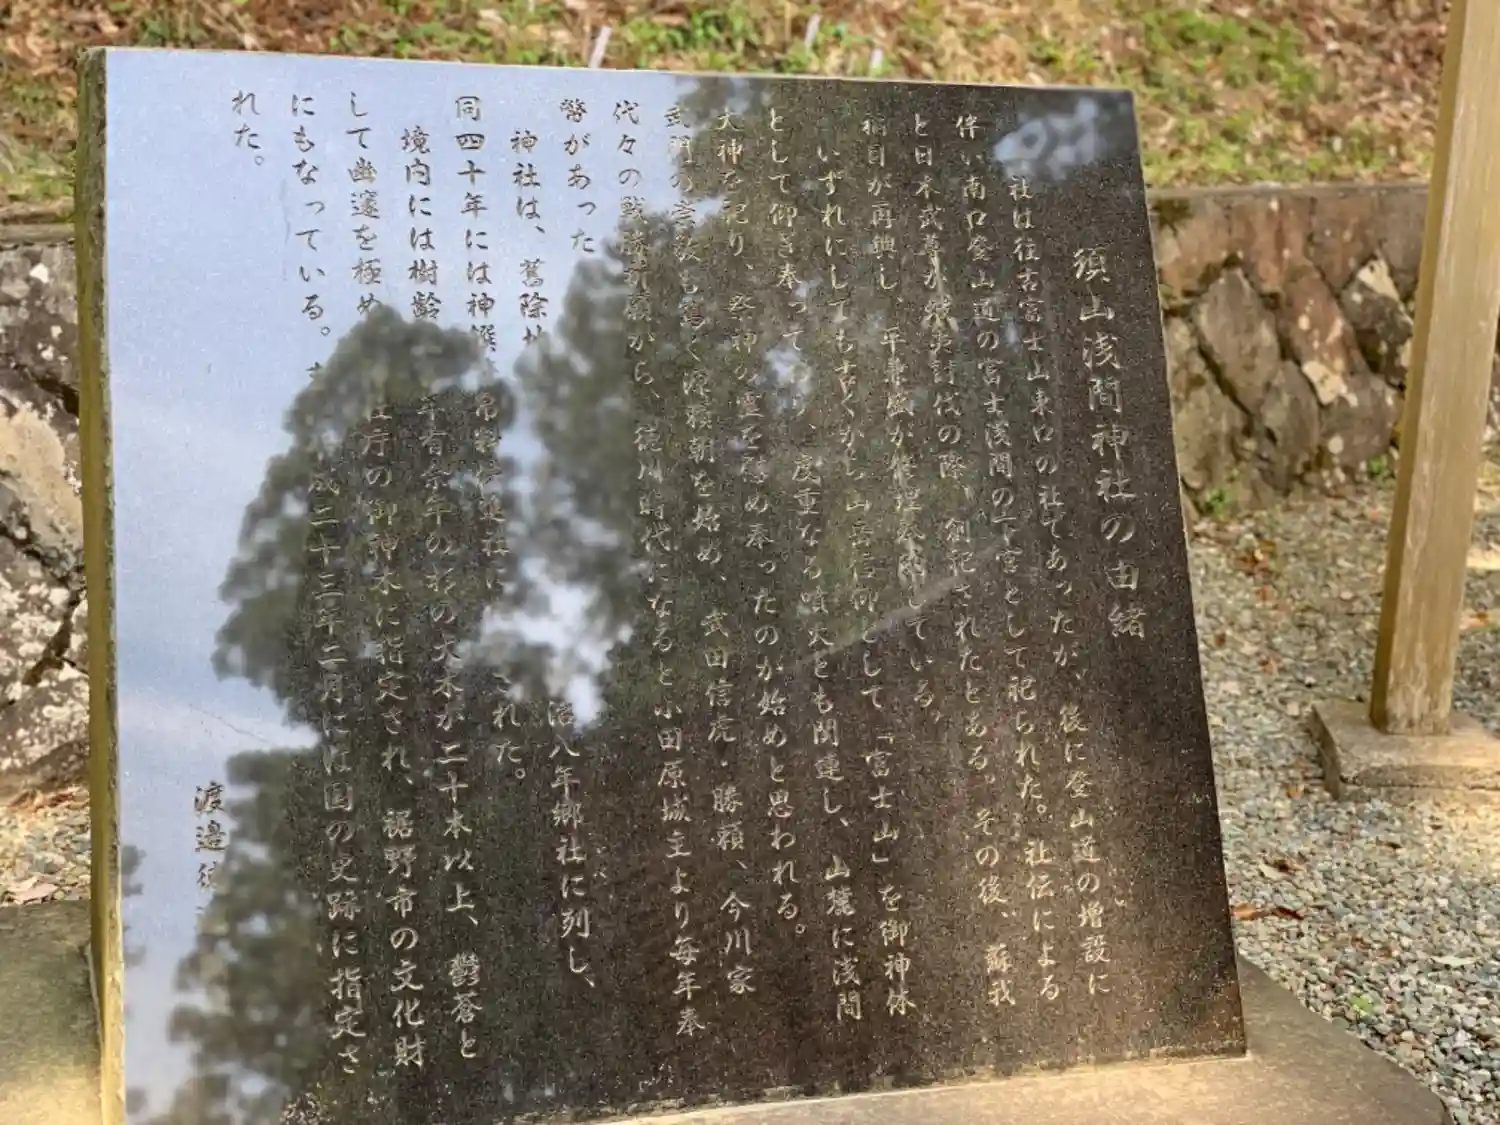 須山浅間神社の由緒
社は往古富士山東口の社であったが、後に登山道の増設に
伴い南口登山道の富士浅間の下宮として祀られた。社伝による
と日本武尊が蝦夷討伐の際、創祀されたとある。その後、蘇我
稲目が再興し、平兼盛が修理奉納している。
いずれにしても古くから山岳信仰として「富士山」を御神体
として御き奉って、度重なる噴火とも関連し、山麓に浅間
大神を祀り、祭神の霊を慰め奉ったのが始めと思われる。
武門の崇敬も篤く源頼朝を始め、武田信虎・勝頼、今川家
代々の戦勝祈願から、徳川時代になると小田原城主より毎年奉
幣があった
神社は、舊除 治八年郷社に列し、
同四十年には神饌 された。
境内には樹齢 年有余年の杉の大木が二十本以上、鬱蒼と
して幽邃を極め 社庁の御神木に指定され、裾野市の文化財
にもなっている。 成二十三年二月には国の史跡に指定さ
れた。
渡邉